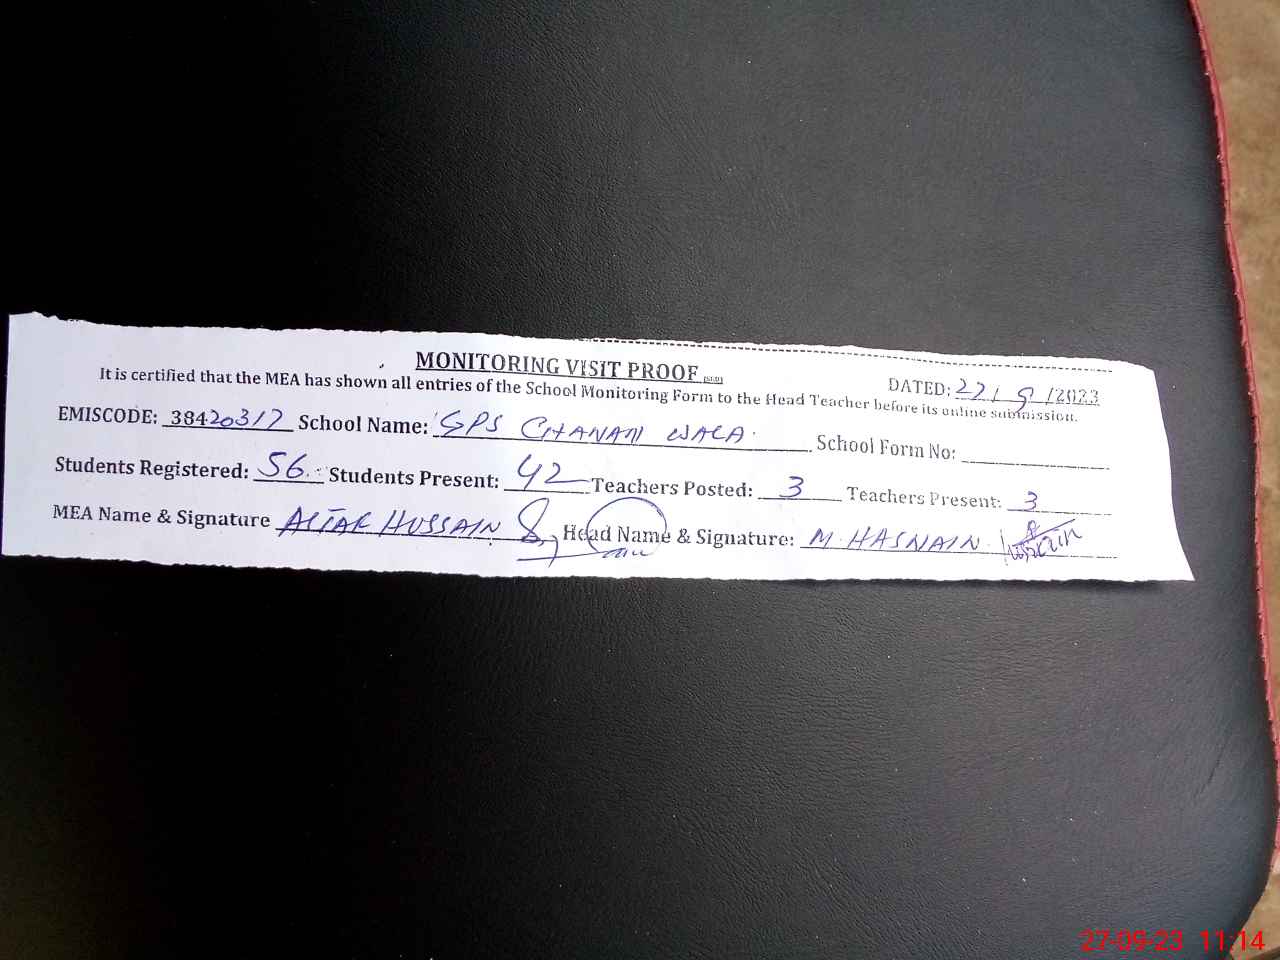 MONITORING VISIT PROOF
DATED: 27/9/2023
It is certified that the MEA has shown all entries of the School Monitoring Form to the Head Teacher before its online submission.
EMISCODE: 38420317 School Name: GPS CHANAN WALA. School Form No:
Students Registered: 56. Students Present: 42 Teachers Posted: 3 Teachers Present: 3
MEA Name & Signature ALTAF HUSSAIN Head Name & Signature: M. HASNAIN. Hasnain
27-09-23 11:14